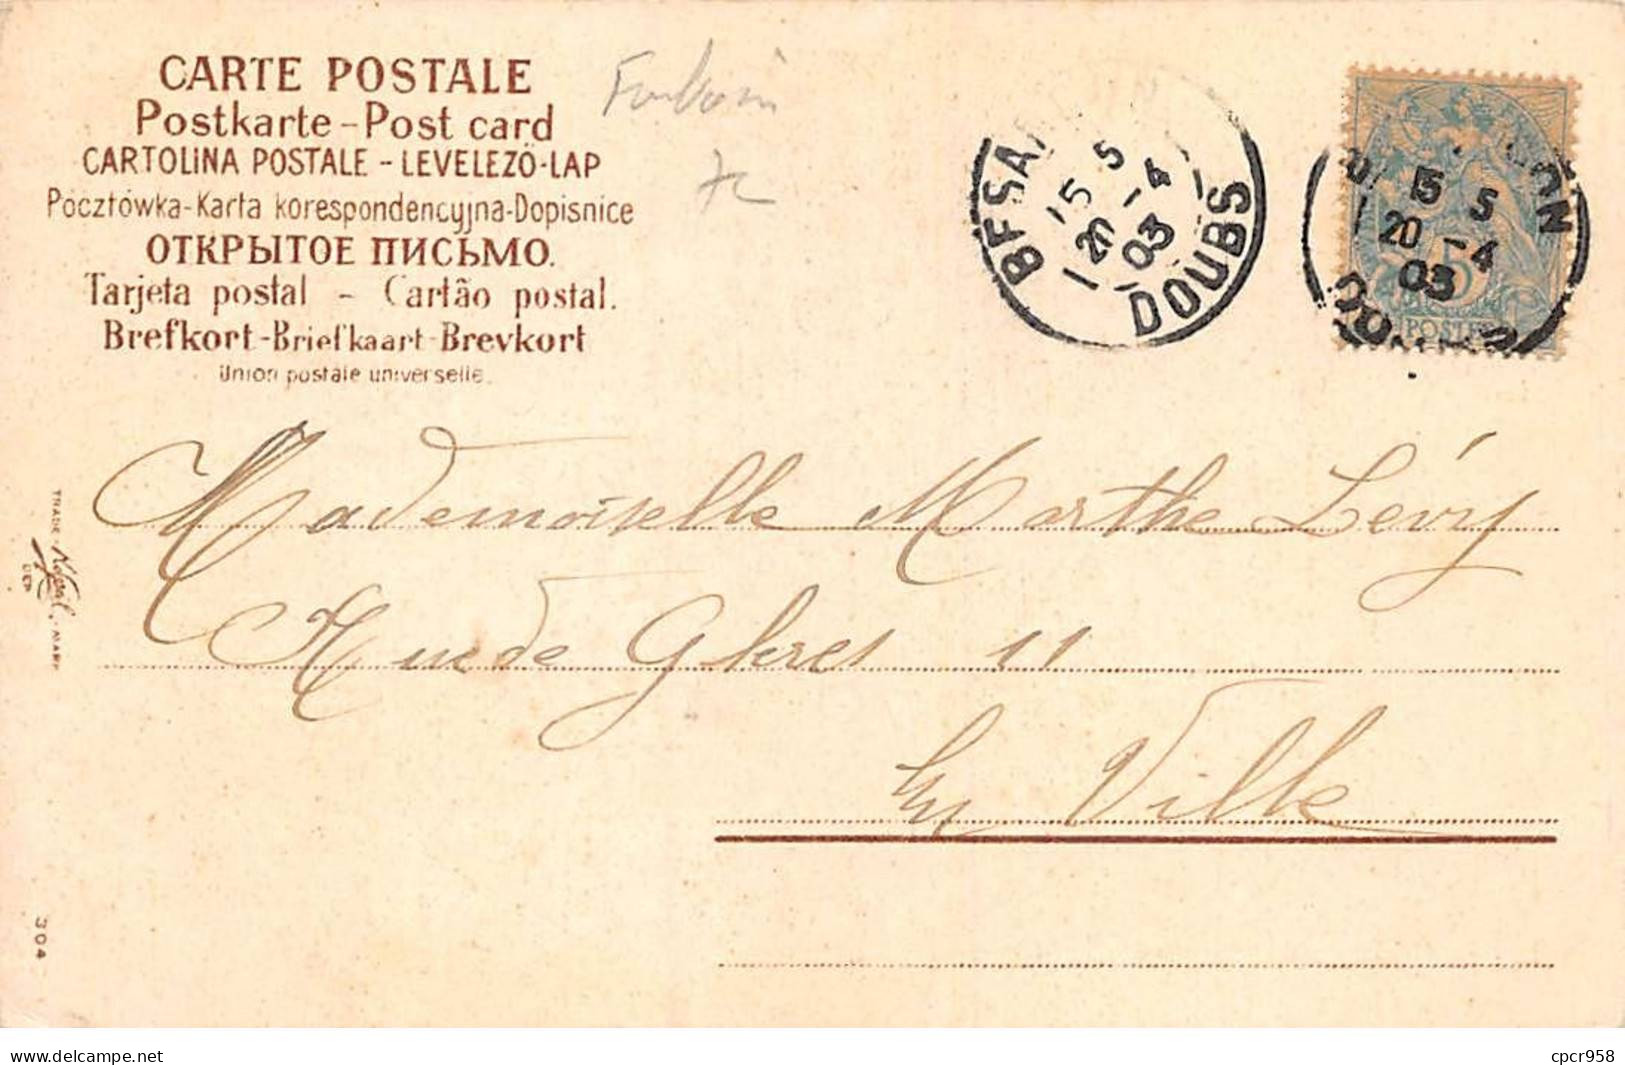 CARTE POSTALE
Postkarte - Post card
CARTOLINA POSTALE - LEVELEZŐ-LAP
Pocztówka - Karta korespondencyjna - Dopisnice
ОТКРЫТОЕ ПИСЬМО.
Tarjeta postal - Cartão postal.
Brefkort - Briefkaart - Brevkort
Union postale universelle.
BESA
15 5
20 -4
03
DOUBS
ON
15 5
20 -4
03
5
POSTE
Mademoiselle Marthe Lévy
Rue de Glères 11
En Ville
TRADE
MARK
DEP
304
delcampe.net
cpcr958